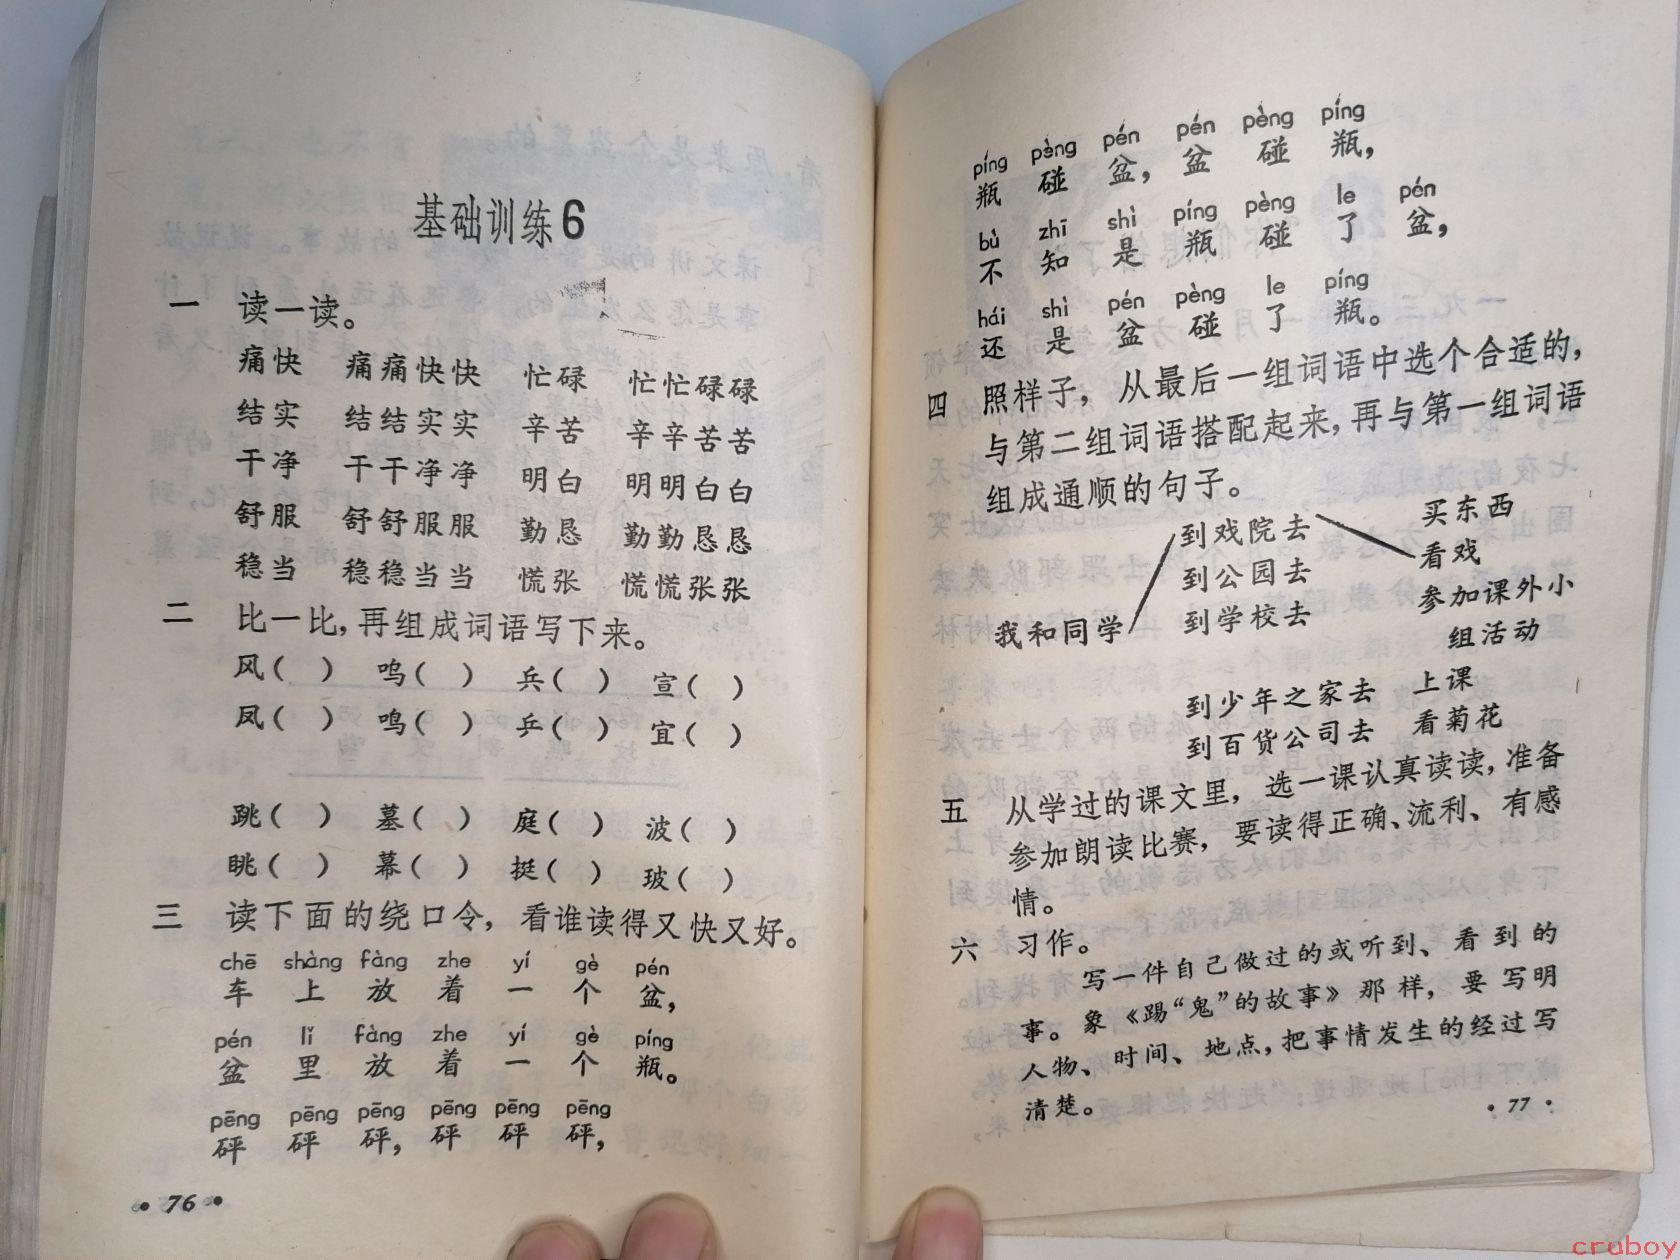 基础训练6
一 读一读。
痛快 痛痛快快 忙碌 忙忙碌碌
结实 结结实实 辛苦 辛辛苦苦
干净 干干净净 明白 明明白白
舒服 舒舒服服 勤恳 勤勤恳恳
稳当 稳稳当当 慌张 慌慌张张
二 比一比，再组成词语写下来。
风（ ） 呜（ ） 兵（ ） 宣（ ）
凤（ ） 鸣（ ） 乒（ ） 宜（ ）
跳（ ） 墓（ ） 庭（ ） 波（ ）
眺（ ） 幕（ ） 挺（ ） 玻（ ）
三 读下面的绕口令，看谁读得又快又好。
chē shàng fàng zhe yí gè pén
车上放着一个盆，
pén lǐ fàng zhe yí gè píng
盆里放着一个瓶。
pēng pēng pēng pēng pēng pēng
砰砰砰，砰砰砰，
• 76 •
píng pèng pén pén pèng píng
瓶碰盆，盆碰瓶，
bù zhī shì píng pèng le pén
不知是瓶碰了盆，
hái shì pén pèng le píng
还是盆碰了瓶。
四 照样子，从最后一组词语中选个合适的，
与第二组词语搭配起来，再与第一组词语
组成通顺的句子。
我和同学
到戏院去
到公园去
到学校去
到少年之家去
到百货公司去
买东西
看戏
参加课外小
组活动
上课
看菊花
五 从学过的课文里，选一课认真读读，准备
参加朗读比赛，要读得正确、流利、有感
情。
六 习作。
写一件自己做过的或听到、看到的
事。象《踢“鬼”的故事》那样，要写明
人物、时间、地点，把事情发生的经过写
清楚。
• 77 •
cruboy